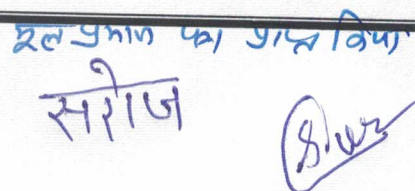 मूल प्रमाण पत्र प्राप्त किया
सरोज